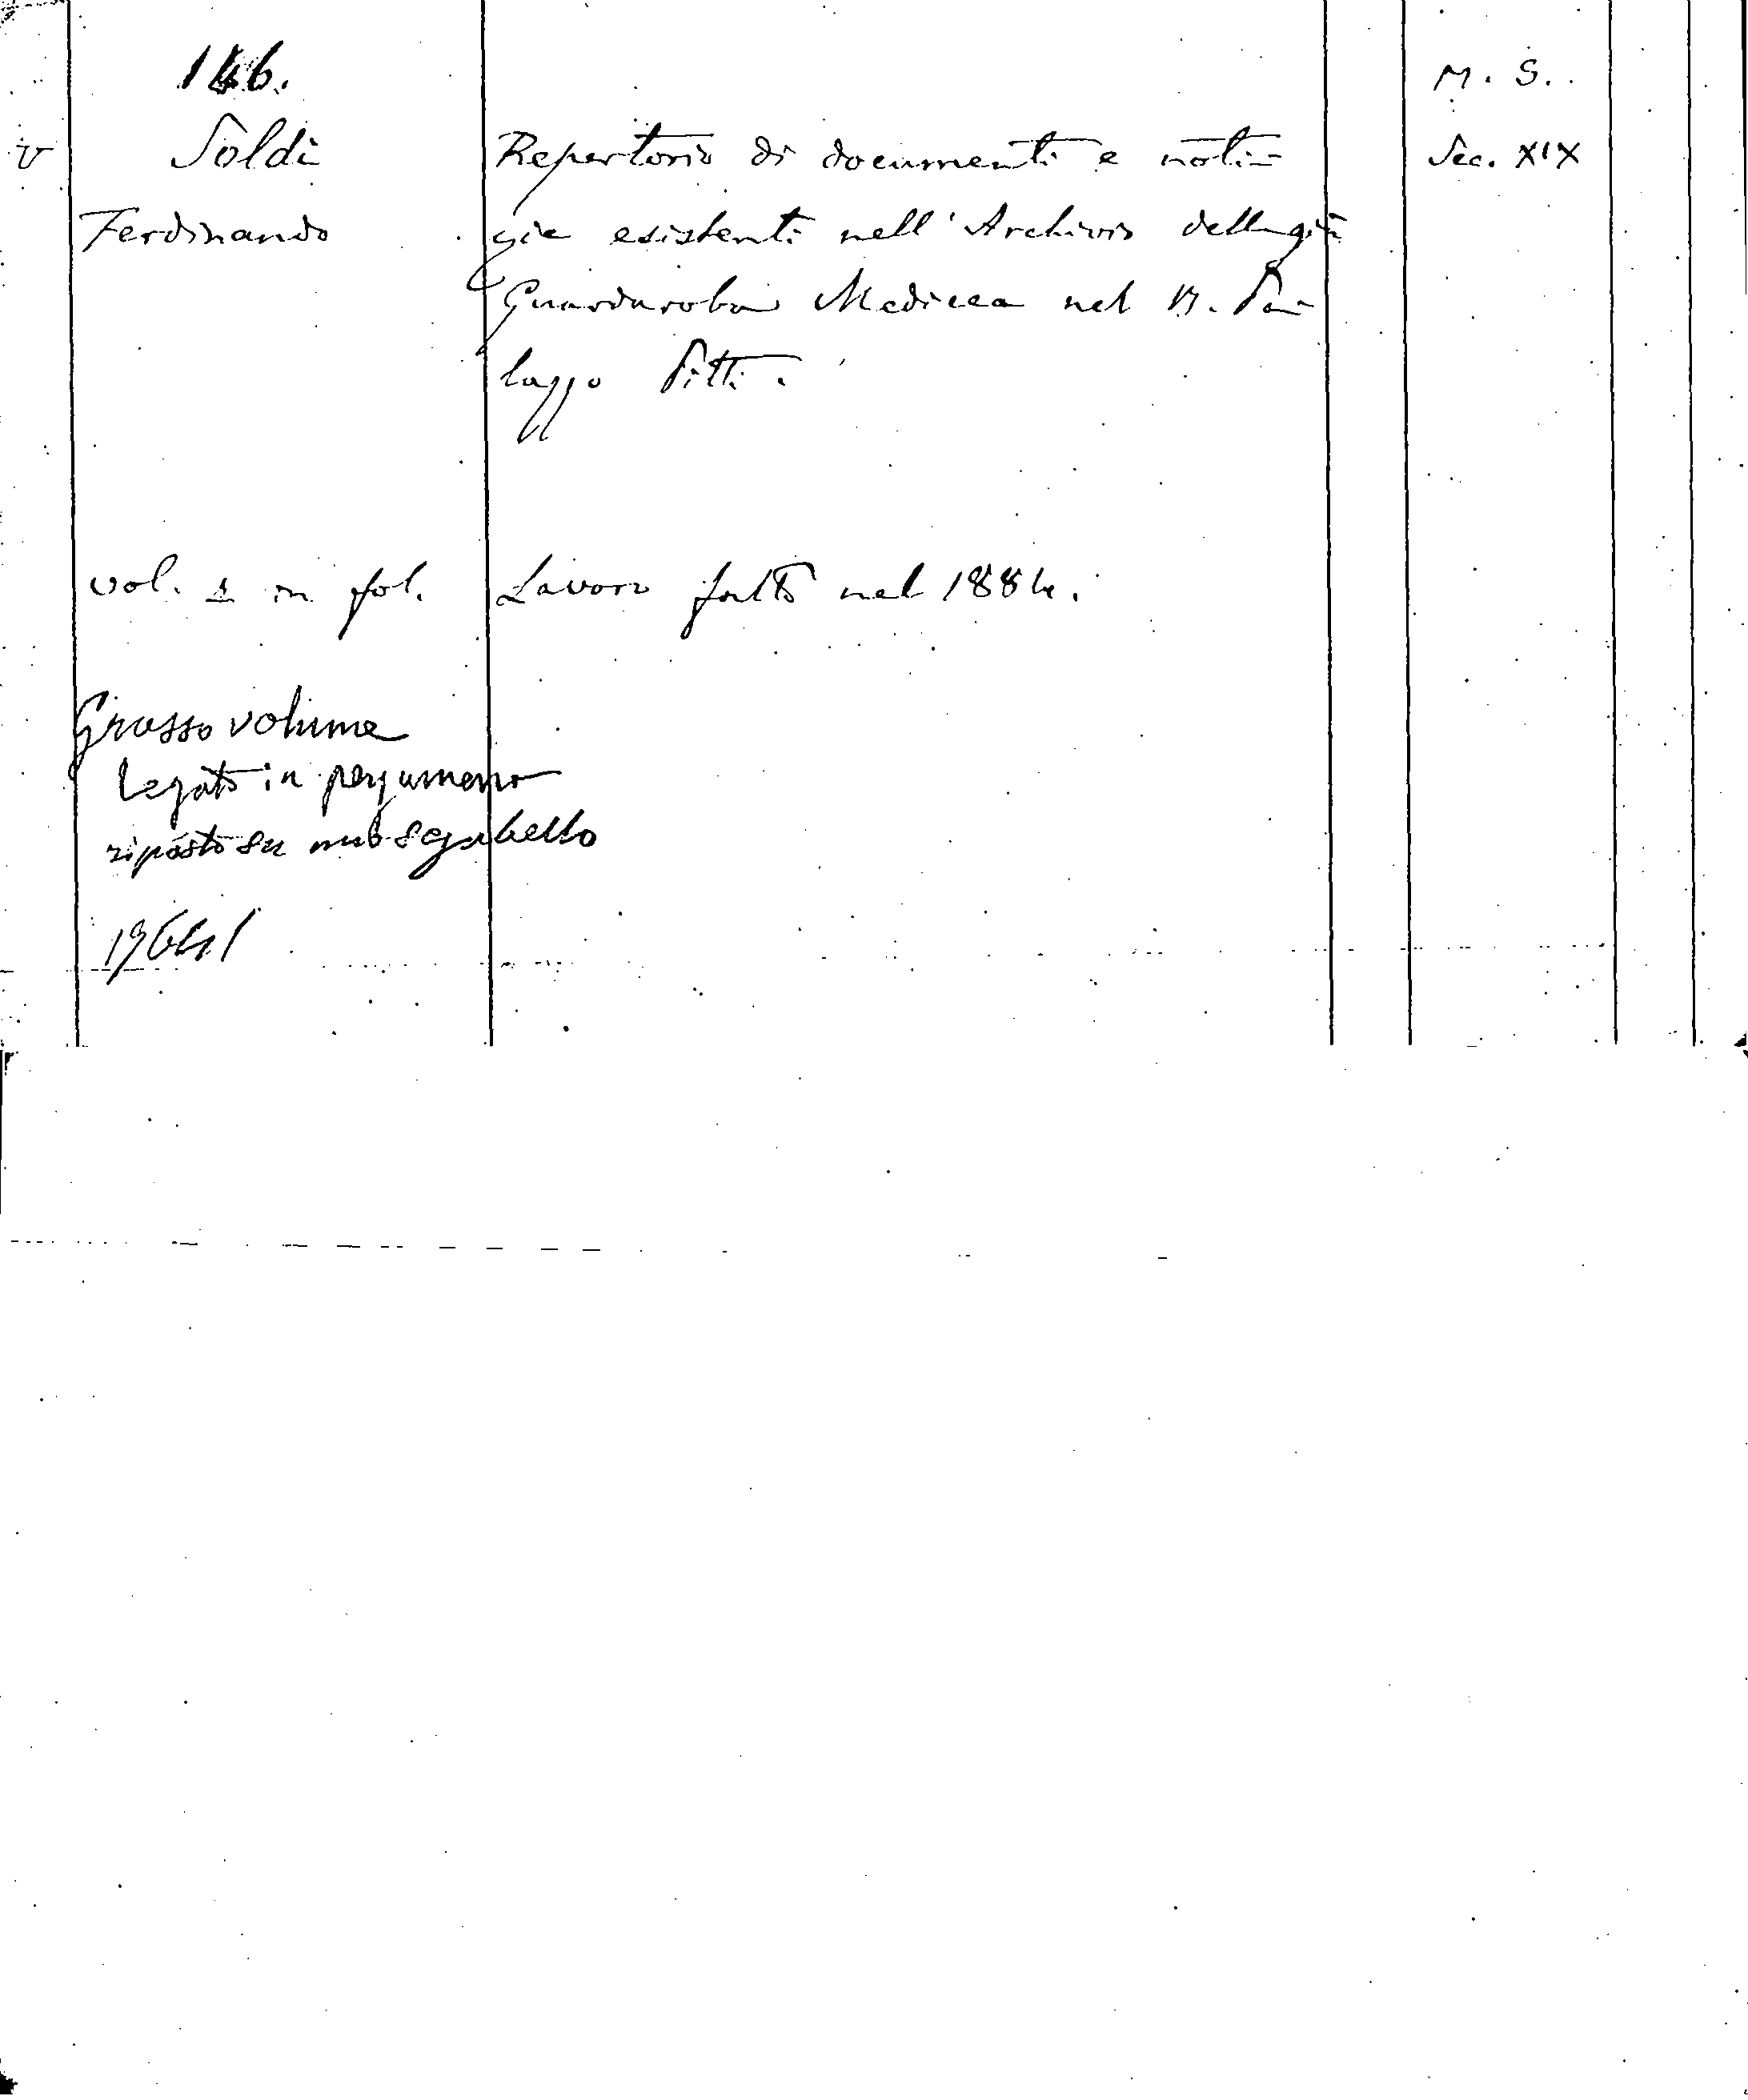 146.
M. S.
v Soldi Repertorio di documenti e noti=
Sec. XIX
Ferdinando zie esistenti nell'Archivio della già
Guardaroba Medicea nel R. Pa=
lazzo Pitti.
vol. 1 in fol. Lavoro fatto nel 1884.
Grosso volume
legato in pergamena
riposto su uno sgabello